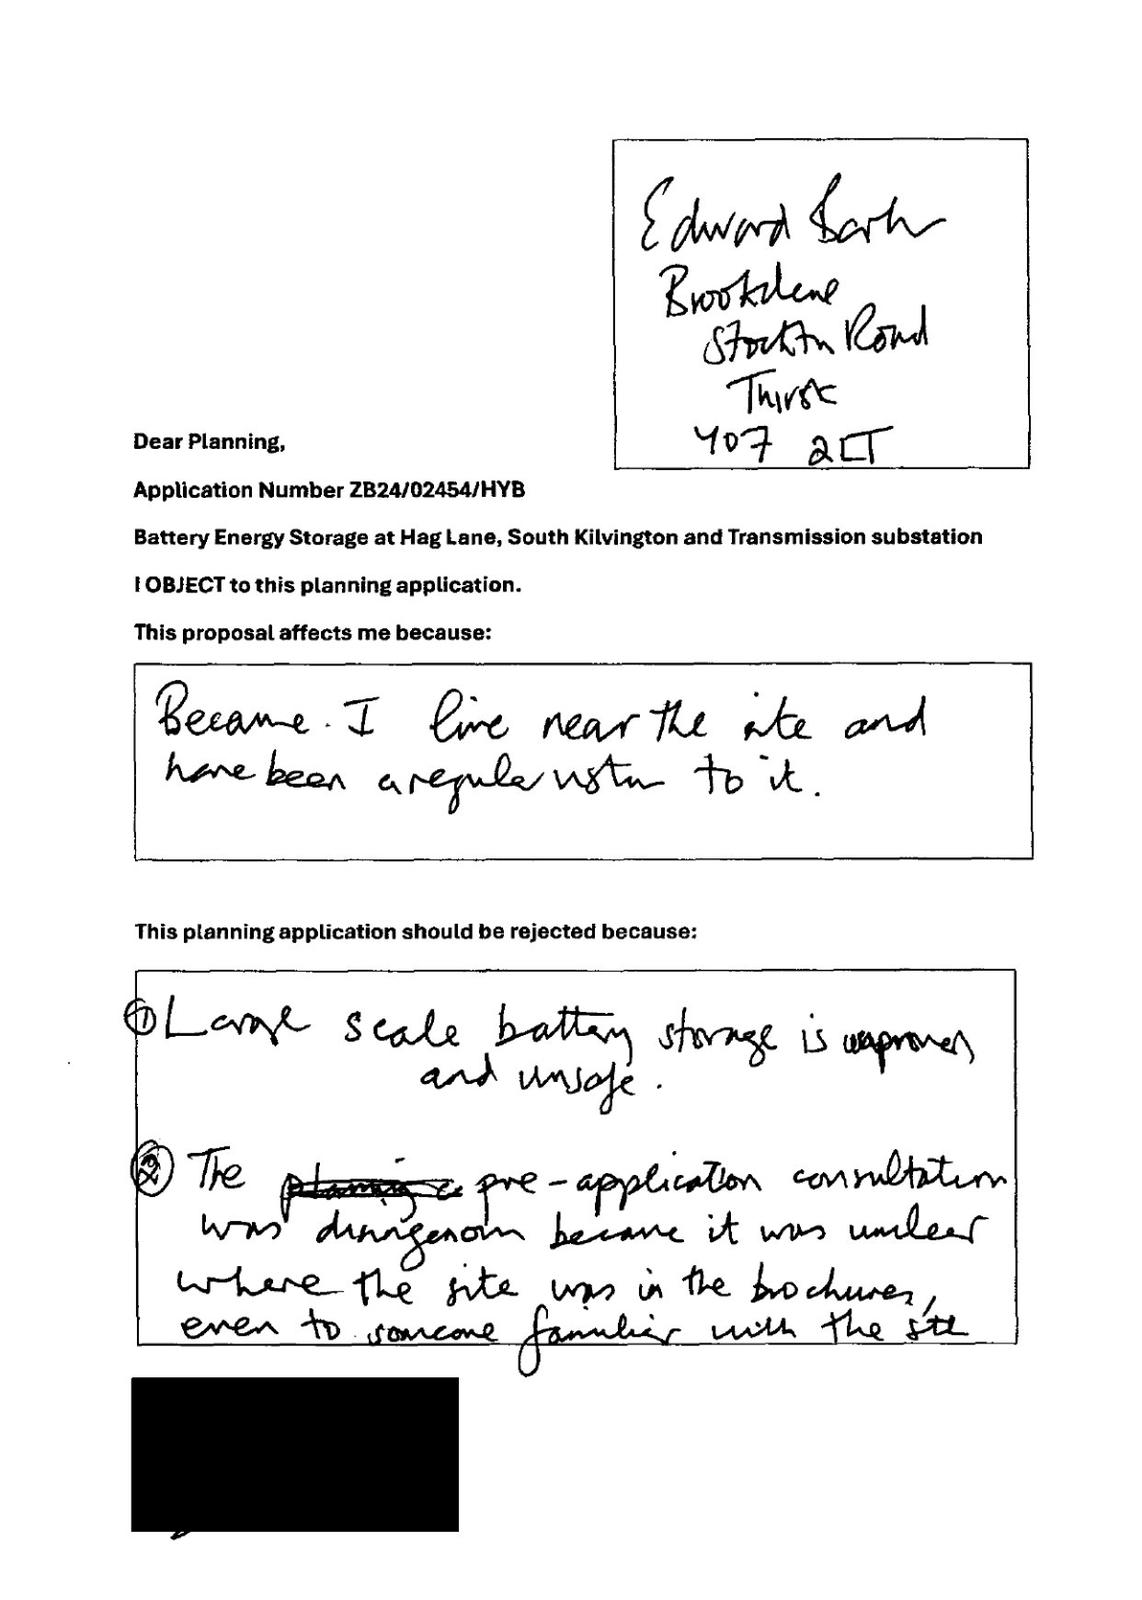 Edward
Brookdene
Stockton Road
Thirsk
YO7 2LT
Dear Planning,
Application Number ZB24/02454/HYB
Battery Energy Storage at Hag Lane, South Kilvington and Transmission substation
I OBJECT to this planning application.
This proposal affects me because:
Because I live near the site and
have been a regular visitor to it.
This planning application should be rejected because:
① Large scale battery storage is unproven
and unsafe.
② The pre-application consultation
was disingenous because it was unclear
where the site was in the brochures,
even to someone familiar with the site